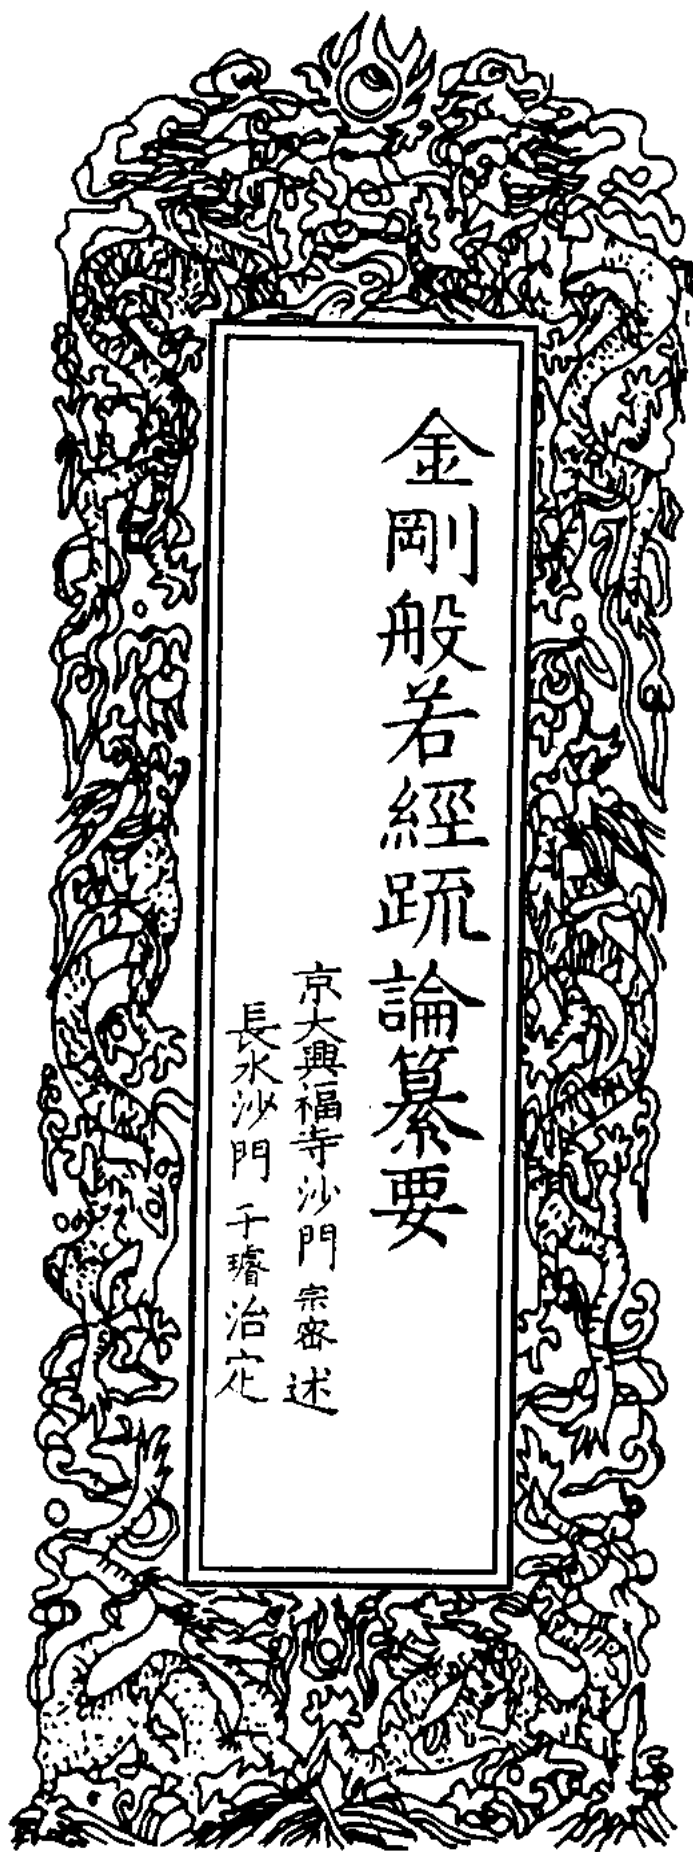 金剛般若經疏論纂要
京大興福寺沙門宗密述
長水沙門子璿治定